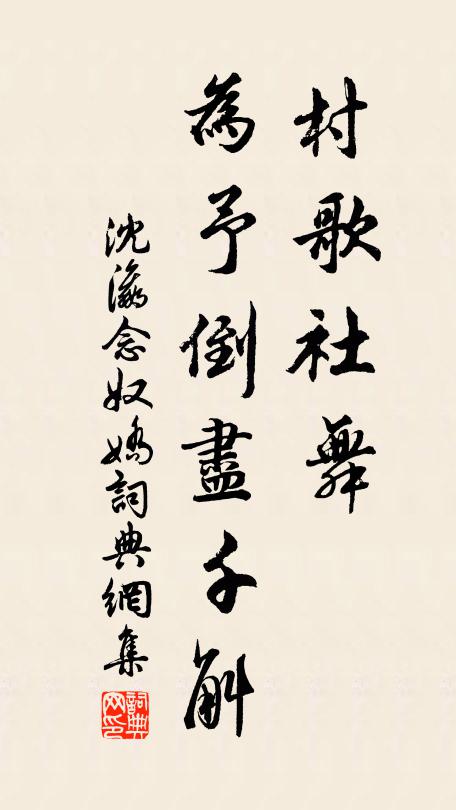 村歌社舞
為予倒盡千斛
沈瀛念奴嬌詞典網集
詞典網印